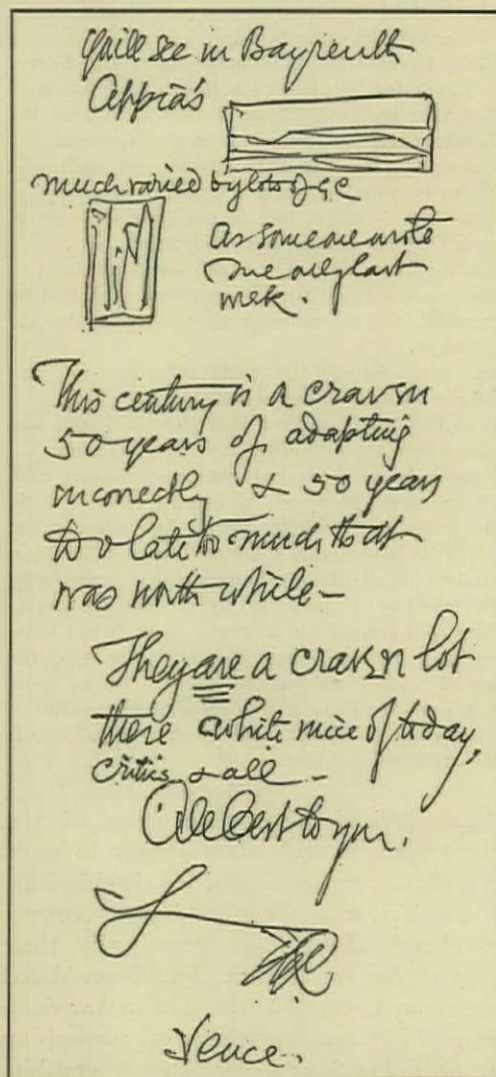 You'll see in Bayreuth
Appia's
much varied by lots of G C
As someone wrote
me only last
week.
This century is a craven
50 years of adapting
incorrectly & 50 years
too late so much that
was worth while —
They are a craven lot
these white mice of today,
critics & all —
All best to you.
Vence.